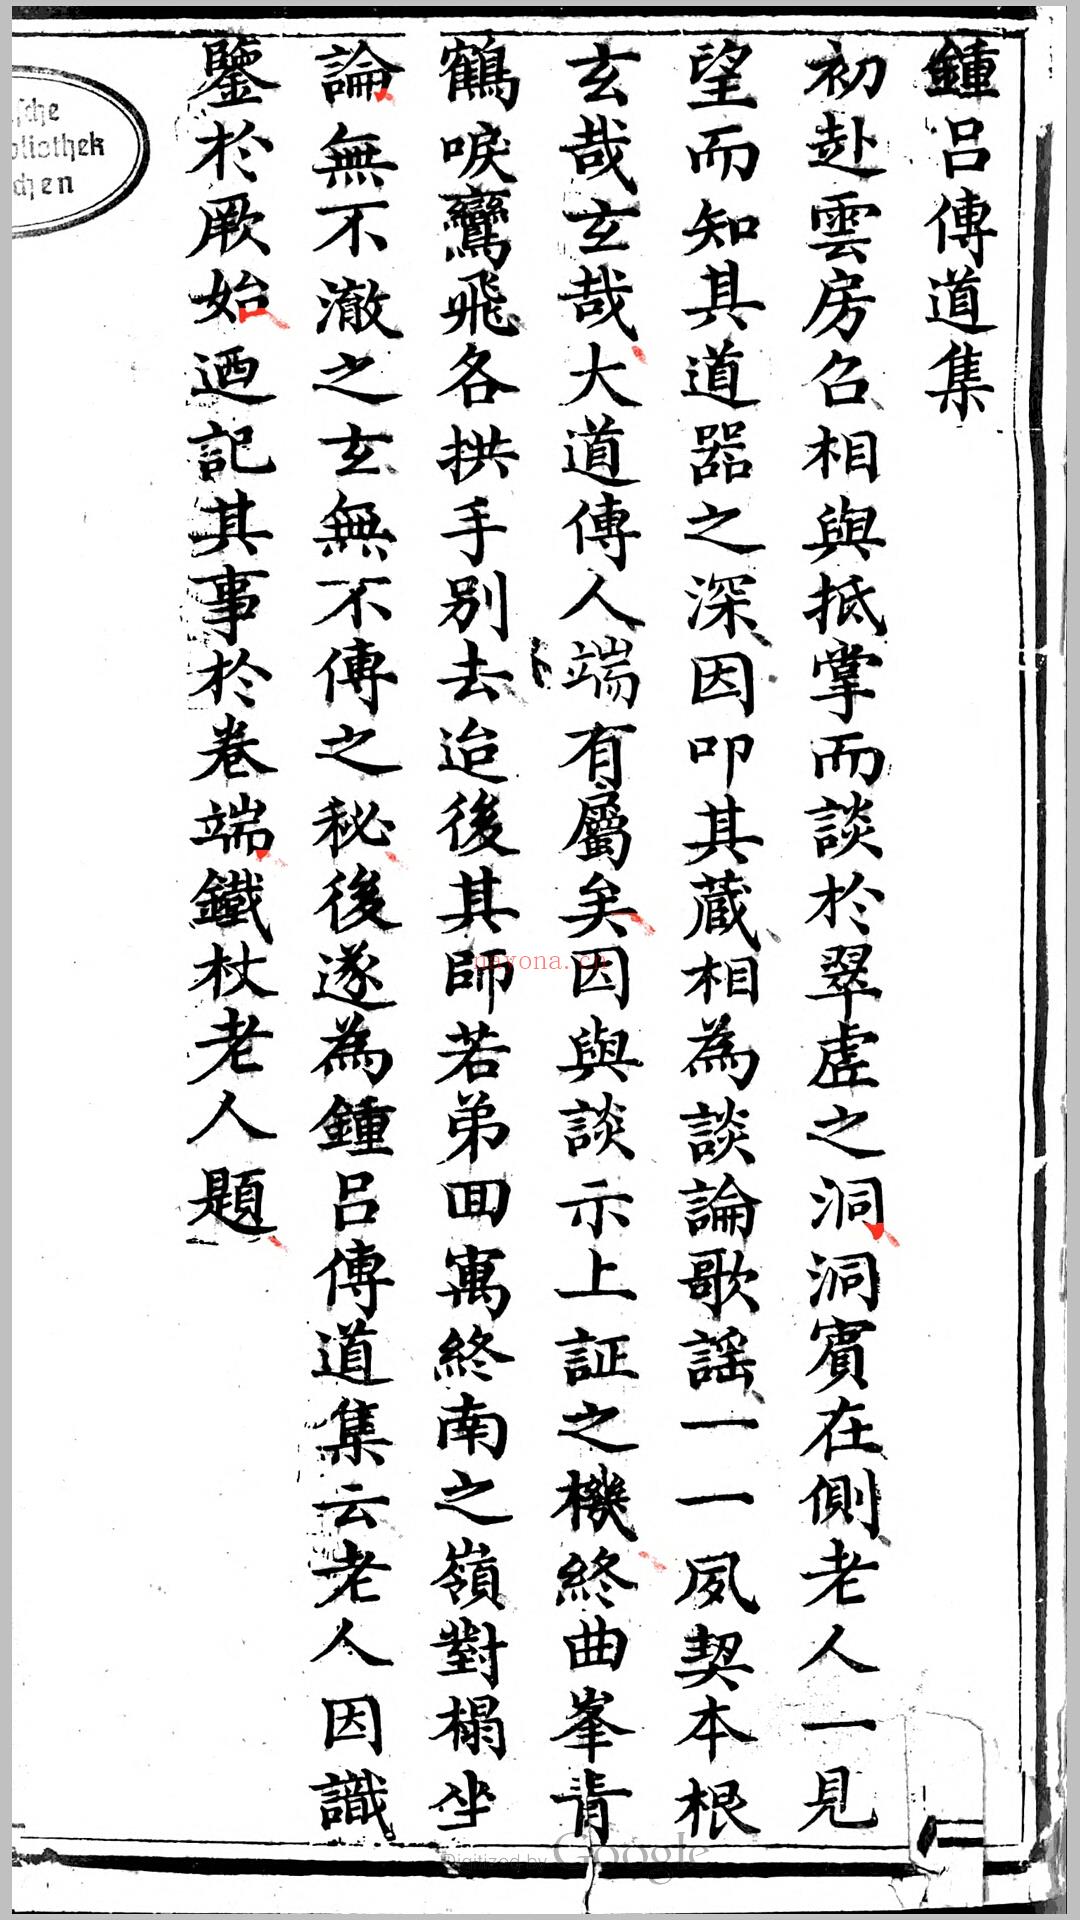 鍾呂傳道集
初赴雲房召相與抵掌而談於翠虛之洞洞賓在側老人一見
望而知其道器之深因叩其蔵相為談論歌謡一一夙契本根
玄哉玄哉大道傳人端有屬矣因與談示上証之機終曲峯青
鶴唳鸞飛各拱手別去迨後其師若弟回寓終南之嶺對榻坐
論無不澈之玄無不傳之秘後遂為鍾呂傳道集云老人因識
鑒於厥始迺記其事於卷端鐵杖老人題
nayona.cn
Digitized by Google